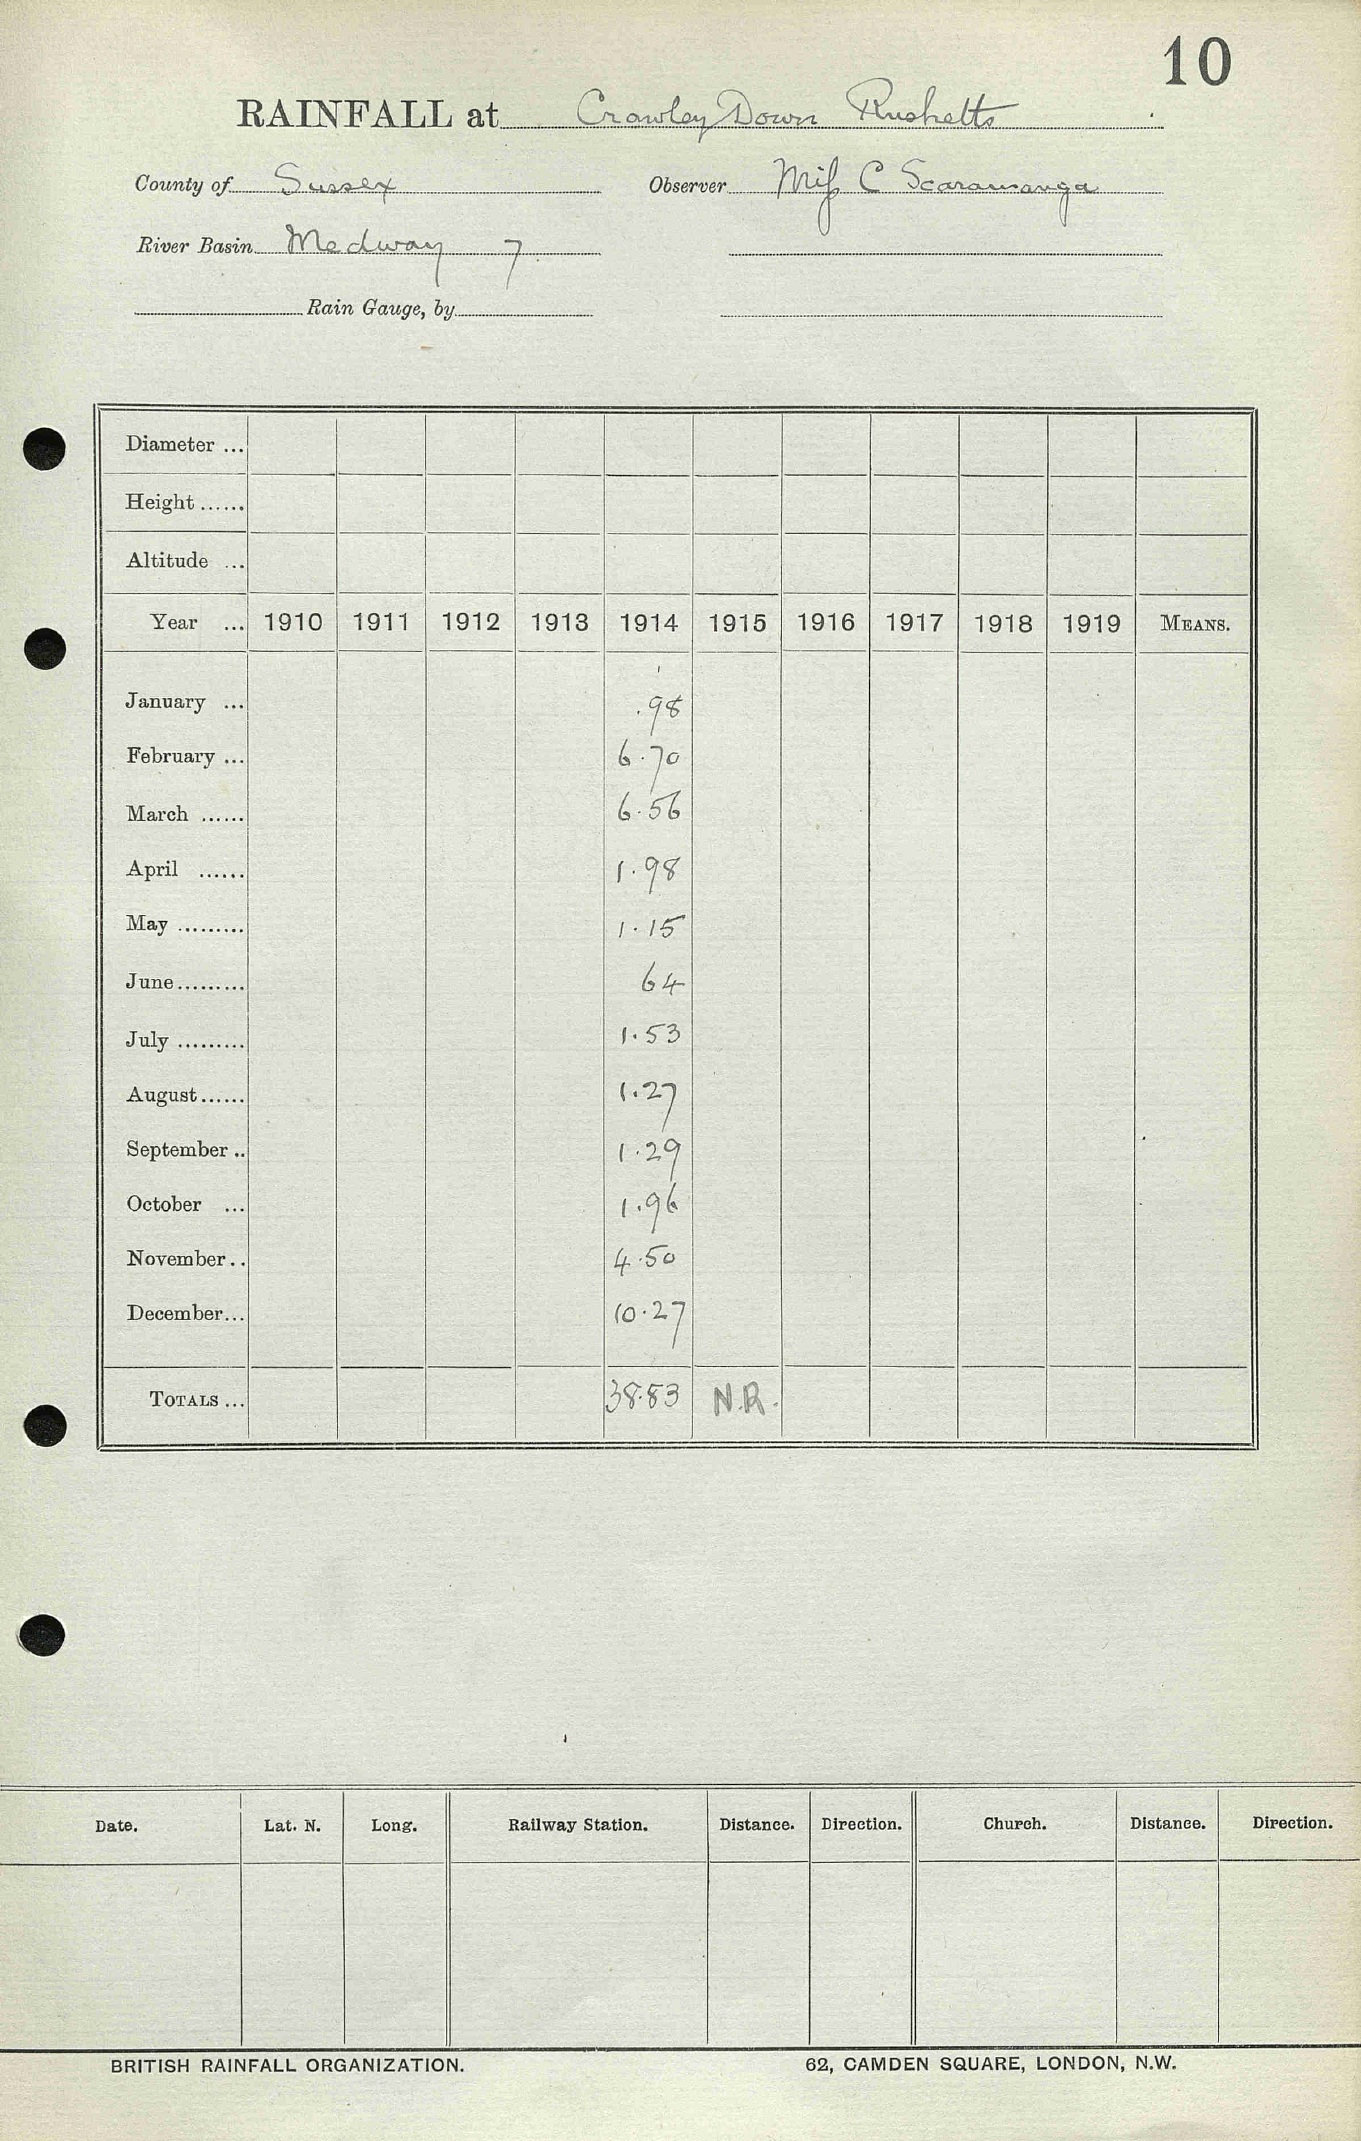 10
RAINFALL at Crawley Down Rushetts
County of Sussex Observer Miss C Scaramanga
River Basin Medway 7
Rain Gauge, by
Diameter ...
Height ......
Altitude ...
Year ... 1910 1911 1912 1913 1914 1915 1916 1917 1918 1919 MEANS.
January ... .98
February ... 6.70
March ...... 6.56
April ...... 1.98
May ......... 1.15
June ......... 64
July ......... 1.53
August ...... 1.27
September .. 1.29
October ... 1.96
November .. 4.50
December ... 10.27
TOTALS ... 38.83 N.R.
Date. Lat. N. Long. Railway Station. Distance. Direction. Church. Distance. Direction.
BRITISH RAINFALL ORGANIZATION. 62, CAMDEN SQUARE, LONDON, N.W.